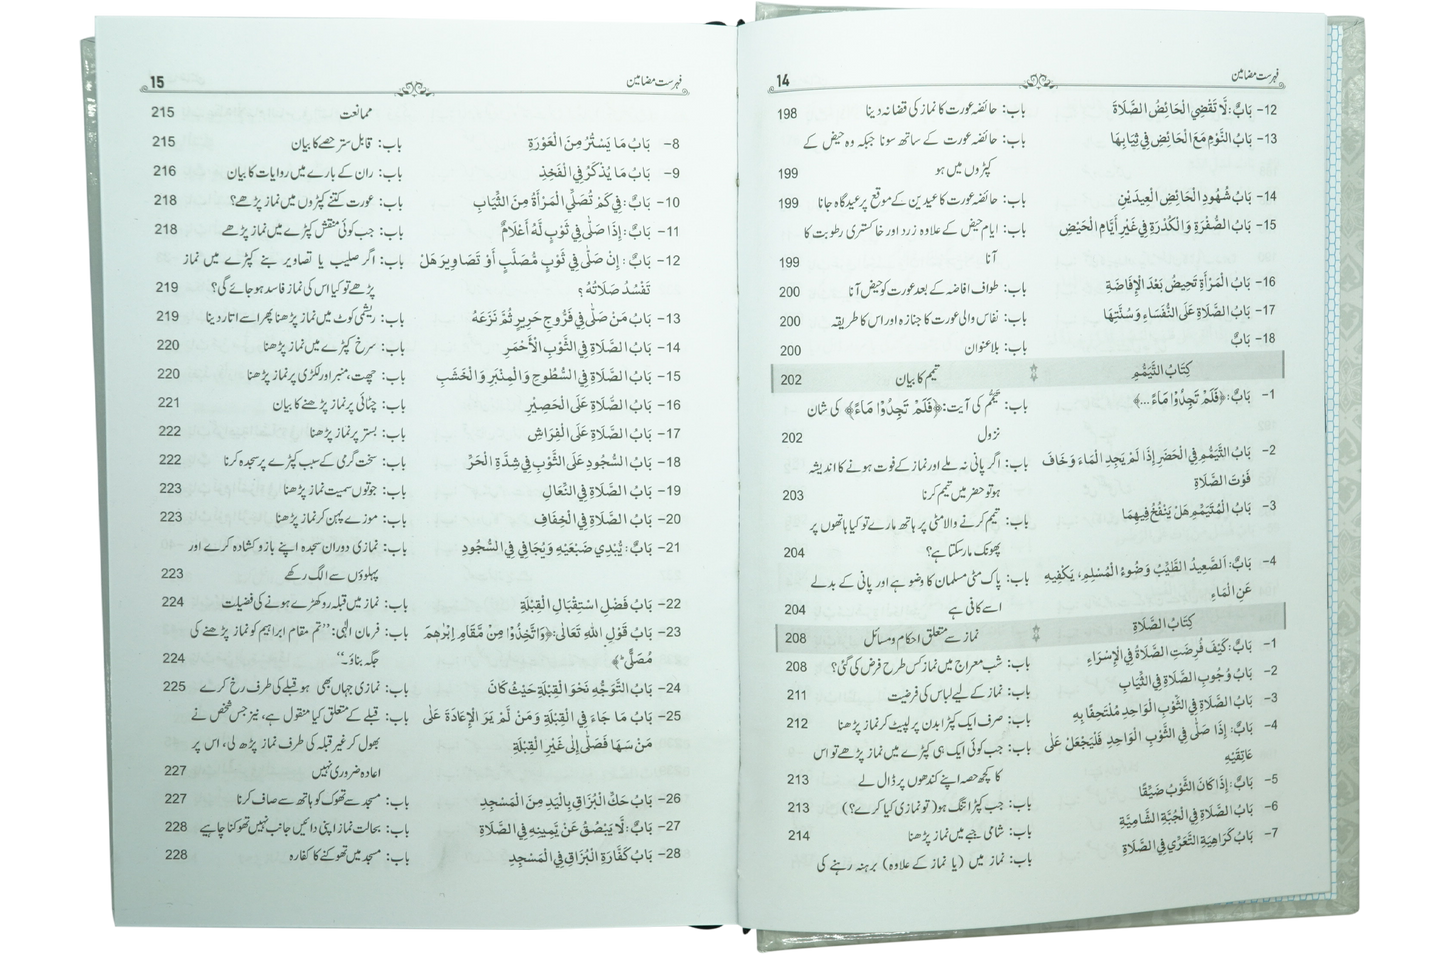 فہرست مضامین 14
12- بَابٌ: لَّا تَقْضِي الْحَائِضُ الصَّلَاةَ باب: حائضہ عورت کا نماز کی قضا نہ دینا 198
13- بَابُ النَّوْمِ مَعَ الْحَائِضِ فِي ثِيَابِهَا باب: حائضہ عورت کے ساتھ سونا جبکہ وہ حیض کے
کپڑوں میں ہو 199
14- بَابُ شُهُودِ الْحَائِضِ الْعِيدَيْنِ باب: حائضہ عورت کا عیدین کے موقع پر عیدگاہ جانا 199
15- بَابُ الصُّفْرَةِ وَالْكُدْرَةِ فِي غَيْرِ أَيَّامِ الْحَيْضِ باب: ایام حیض کے علاوہ زرد اور خاکستری رطوبت کا
آنا 199
16- بَابُ الْمَرْأَةِ تَحِيضُ بَعْدَ الْإِفَاضَةِ باب: طواف افاضہ کے بعد عورت کو حیض آنا 200
17- بَابُ الصَّلَاةِ عَلَى النُّفَسَاءِ وَسُنَّتِهَا باب: نفاس والی عورت کا جنازہ اور اس کا طریقہ 200
18- بَابٌ باب: بلاعنوان 200
كِتَابُ التَّيَمُّمِ تیمم کا بیان 202
1- بَابٌ: ﴿فَلَمْ تَجِدُوْا مَآءً ...﴾ باب: تیمُّم کی آیت: ﴿فَلَمْ تَجِدُوْا مَآءً﴾ کی شان
نزول 202
2- بَابُ التَّيَمُّمِ فِي الْحَضَرِ إِذَا لَمْ يَجِدِ الْمَاءَ وَخَافَ باب: اگر پانی نہ ملے اور نماز کے فوت ہونے کا اندیشہ
فَوْتَ الصَّلَاةِ ہو تو حضر میں تیمم کرنا 203
3- بَابُ الْمُتَيَمِّمِ هَلْ يَنْفُخُ فِيهِمَا باب: تیمم کرنے والا مٹی پر ہاتھ مارے تو کیا ہاتھوں پر
پھونک مار سکتا ہے؟ 204
4- بَابٌ: اَلصَّعِيدُ الطَّيِّبُ وَضُوءُ الْمُسْلِمِ، يَكْفِيهِ باب: پاک مٹی مسلمان کا وضو ہے اور پانی کے بدلے
عَنِ الْمَاءِ اسے کافی ہے 204
كِتَابُ الصَّلَاةِ نماز سے متعلق احکام و مسائل 208
1- بَابٌ: كَيْفَ فُرِضَتِ الصَّلَاةُ فِي الْإِسْرَاءِ باب: شب معراج میں نماز کس طرح فرض کی گئی؟ 208
2- بَابُ وُجُوبِ الصَّلَاةِ فِي الثِّيَابِ باب: نماز کے لیے لباس کی فرضیت 211
3- بَابُ الصَّلَاةِ فِي الثَّوْبِ الْوَاحِدِ مُلْتَحِفًا بِهِ باب: صرف ایک کپڑا بدن پر لپیٹ کر نماز پڑھنا 212
4- بَابٌ: إِذَا صَلَّى فِي الثَّوْبِ الْوَاحِدِ فَلْيَجْعَلْ عَلَى باب: جب کوئی ایک ہی کپڑے میں نماز پڑھے تو اس
عَاتِقَيْهِ کا کچھ حصہ اپنے کندھوں پر ڈال لے 213
5- بَابٌ: إِذَا كَانَ الثَّوْبُ ضَيِّقًا باب: جب کپڑا تنگ ہو (تو نمازی کیا کرے؟) 213
6- بَابُ الصَّلَاةِ فِي الْجُبَّةِ الشَّامِيَّةِ باب: شامی جبے میں نماز پڑھنا 214
7- بَابُ كَرَاهِيَةِ التَّعَرِّي فِي الصَّلَاةِ باب: نماز میں (یا نماز کے علاوہ) برہنہ رہنے کی
فہرست مضامین 15
ممانعت 215
8- بَابُ مَا يَسْتُرُ مِنَ الْعَوْرَةِ باب: قابل ستر حصے کا بیان 215
9- بَابُ مَا يُذْكَرُ فِي الْفَخِذِ باب: ران کے بارے میں روایات کا بیان 216
10- بَابٌ: فِي كَمْ تُصَلِّي الْمَرْأَةُ مِنَ الثِّيَابِ باب: عورت کتنے کپڑوں میں نماز پڑھے؟ 218
11- بَابٌ: إِذَا صَلّٰى فِي ثَوْبٍ لَّهُ أَعْلَامٌ باب: جب کوئی منقش کپڑے میں نماز پڑھے 218
12- بَابٌ: إِنْ صَلّٰى فِي ثَوْبٍ مُصَلَّبٍ أَوْ تَصَاوِيرَ هَلْ باب: اگر صلیب یا تصاویر بنے کپڑے میں نماز
تَفْسُدُ صَلَاتُهُ؟ پڑھے تو کیا اس کی نماز فاسد ہو جائے گی؟ 219
13- بَابُ مَنْ صَلّٰى فِي فَرُّوجِ حَرِيرٍ ثُمَّ نَزَعَهُ باب: ریشمی کوٹ میں نماز پڑھنا پھر اسے اتار دینا 219
14- بَابُ الصَّلَاةِ فِي الثَّوْبِ الْأَحْمَرِ باب: سرخ کپڑے میں نماز پڑھنا 220
15- بَابُ الصَّلَاةِ فِي السُّطُوحِ وَالْمِنْبَرِ وَالْخَشَبِ باب: چھت، منبر اور لکڑی پر نماز پڑھنا 220
16- بَابُ الصَّلَاةِ عَلَى الْحَصِيْرِ باب: چٹائی پر نماز پڑھنے کا بیان 221
17- بَابُ الصَّلَاةِ عَلَى الْفِرَاشِ باب: بستر پر نماز پڑھنا 222
18- بَابُ السُّجُودِ عَلَى الثَّوْبِ فِي شِدَّةِ الْحَرِّ باب: سخت گرمی کے سبب کپڑے پر سجدہ کرنا 222
19- بَابُ الصَّلَاةِ فِي النِّعَالِ باب: جوتوں سمیت نماز پڑھنا 223
20- بَابُ الصَّلَاةِ فِي الْخِفَافِ باب: موزے پہن کر نماز پڑھنا 223
21- بَابٌ: يُبْدِي ضَبْعَيْهِ وَيُجَافِي فِي السُّجُودِ باب: نمازی دوران سجدہ اپنے بازو کشادہ کرے اور
پہلوؤں سے الگ رکھے 223
22- بَابُ فَضْلِ اسْتِقْبَالِ الْقِبْلَةِ باب: نماز میں قبلہ رو کھڑے ہونے کی فضیلت 224
23- بَابُ قَوْلِ اللهِ تَعَالٰى: ﴿وَاتَّخِذُوْا مِنْ مَّقَامِ اِبْرٰهِمَ باب: فرمان الٰہی: ”تم مقام ابراہیم کو نماز پڑھنے کی
مُصَلًّى﴾ جگہ بناؤ۔“ 224
24- بَابُ التَّوَجُّهِ نَحْوَ الْقِبْلَةِ حَيْثُ كَانَ باب: نمازی جہاں بھی ہو قبلے کی طرف رخ کرے 225
25- بَابُ مَا جَاءَ فِي الْقِبْلَةِ وَمَنْ لَمْ يَرَ الْإِعَادَةَ عَلٰى باب: قبلے کے متعلق کیا منقول ہے، نیز جس شخص نے
مَنْ سَهَا فَصَلّٰى إِلٰى غَيْرِ الْقِبْلَةِ بھول کر غیر قبلہ کی طرف نماز پڑھ لی، اس پر
اعادہ ضروری نہیں 227
26- بَابُ حَكِّ الْبُزَاقِ بِالْيَدِ مِنَ الْمَسْجِدِ باب: مسجد سے تھوک کو ہاتھ سے صاف کرنا 227
27- بَابٌ: لَّا يَبْصُقْ عَنْ يَّمِينِهِ فِي الصَّلَاةِ باب: بحالت نماز اپنی دائیں جانب نہیں تھوکنا چاہیے 228
28- بَابُ كَفَّارَةِ الْبُزَاقِ فِي الْمَسْجِدِ باب: مسجد میں تھوکنے کا کفارہ 228